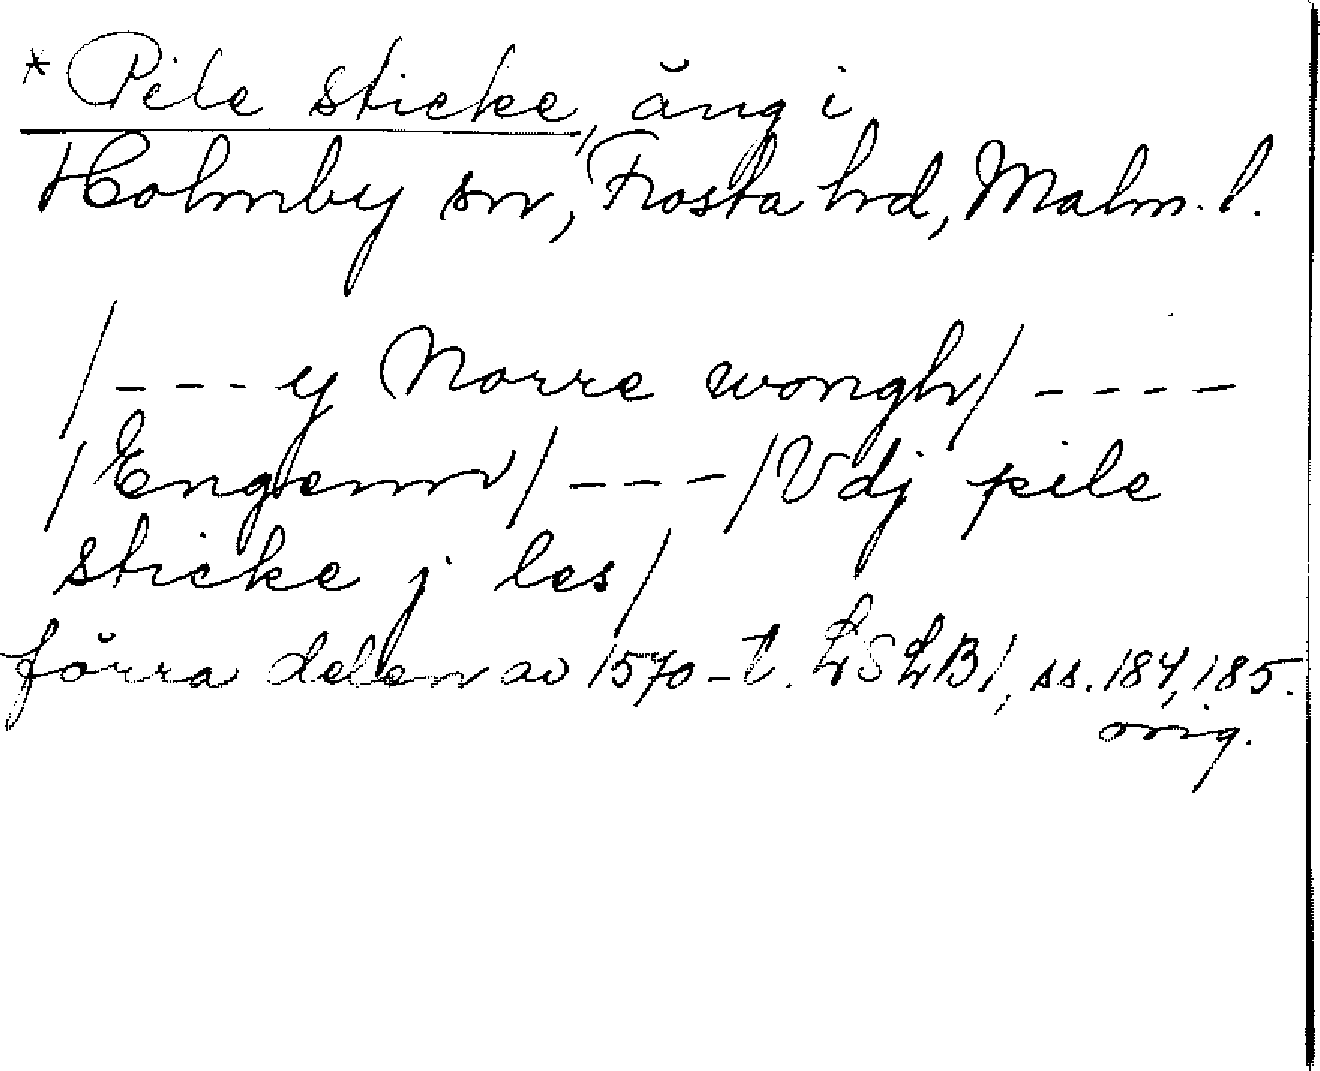 *Pile sticke, äng i
Holmby sn, Frosta hd, Malm. l.
/---y Norre wongh/----
/Engenn/---/Vdj pile
sticke j les/
förra delen av 1570-t. LSLB1, ss. 184, 185.
orig.